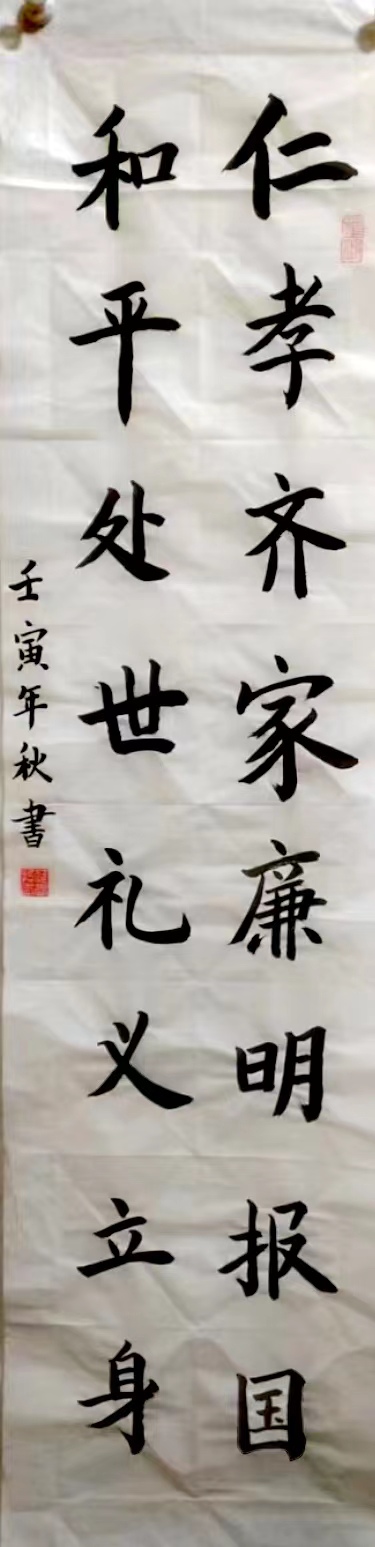 仁孝齐家廉明报国
和平处世礼义立身
壬寅年秋書